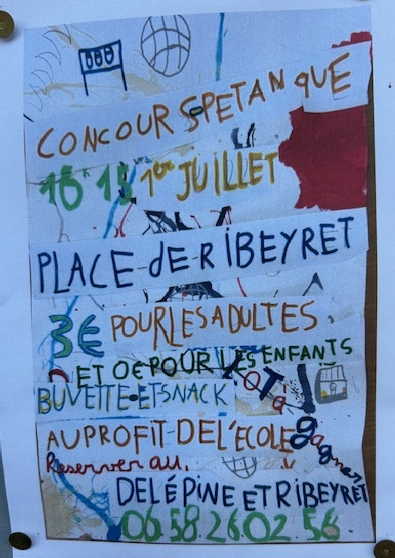 CONCOURS PETANQUE
16h15 1er JUILLET
PLACE-de-RIBEYRET
3€ POUR LES ADULTES
ET 0€ POUR LES ENFANTS
LOT à gagner
BUVETTE•ET SNACK
AU PROFIT-DE L'ECOLE
Reserver au,
DELÉPINE ET RIBEYRET
06.58.26.02.56